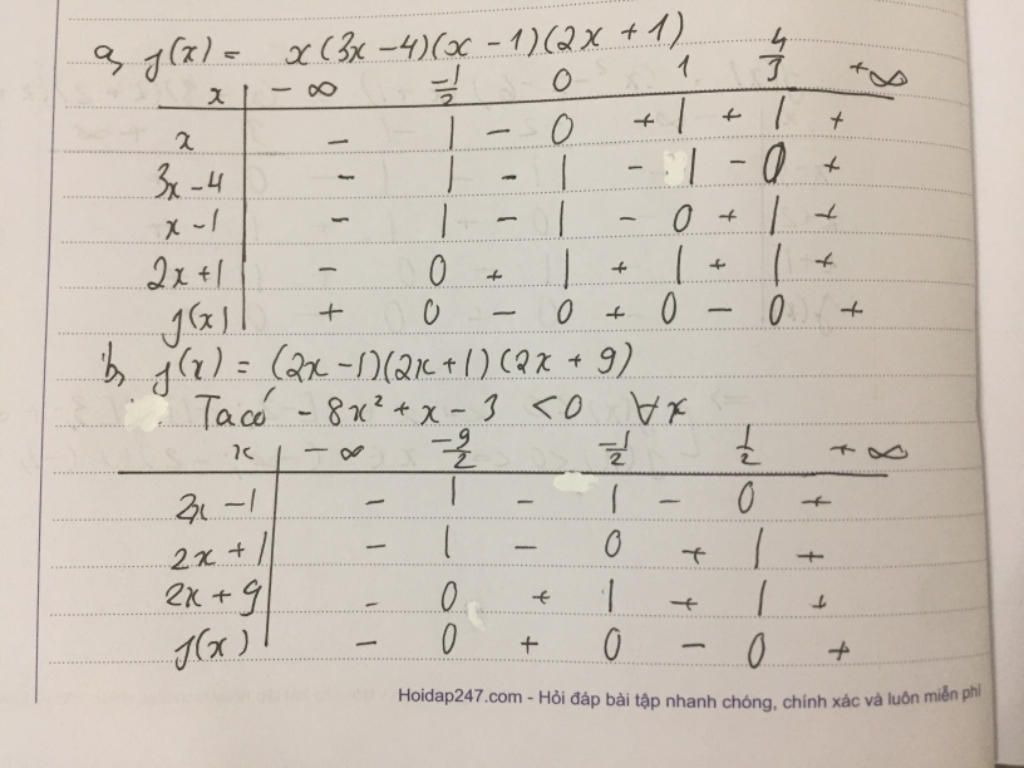 a, f(x) = x(3x-4)(x-1)(2x+1)
x -∞ -1/2 0 1 4/3 +∞
x - | - 0 + | + | +
3x-4 - | - | - | - 0 +
x-1 - | - | - 0 + | +
2x+1 - 0 + | + | + | +
f(x) + 0 - 0 + 0 - 0 +
b, f(x) = (2x-1)(2x+1)(2x+9)
Ta có -8x²+x-3 <0 ∀x
x -∞ -9/2 -1/2 1/2 +∞
2x-1 - | - | - 0 +
2x+1 - | - 0 + | +
2x+9 - 0 + | + | +
f(x) - 0 + 0 - 0 +
Hoidap247.com - Hỏi đáp bài tập nhanh chóng, chính xác và luôn miễn phí